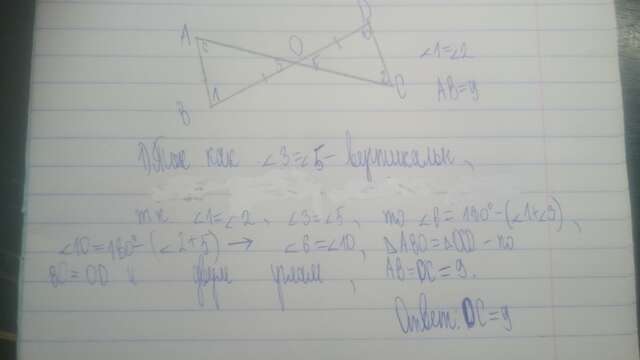 A
D
O
B
C
∠1=∠2
AB=9
1) Так как ∠3=∠5 - вертикальн,
тк ∠1=∠2, ∠3=∠5, то ∠6=180°-(∠1+∠3),
∠10=180°-(∠2+5) → ∠6=∠10, △ABO=△OCD - по
BO=OD и двум углам, AB=DC=9.
Ответ: DC=9